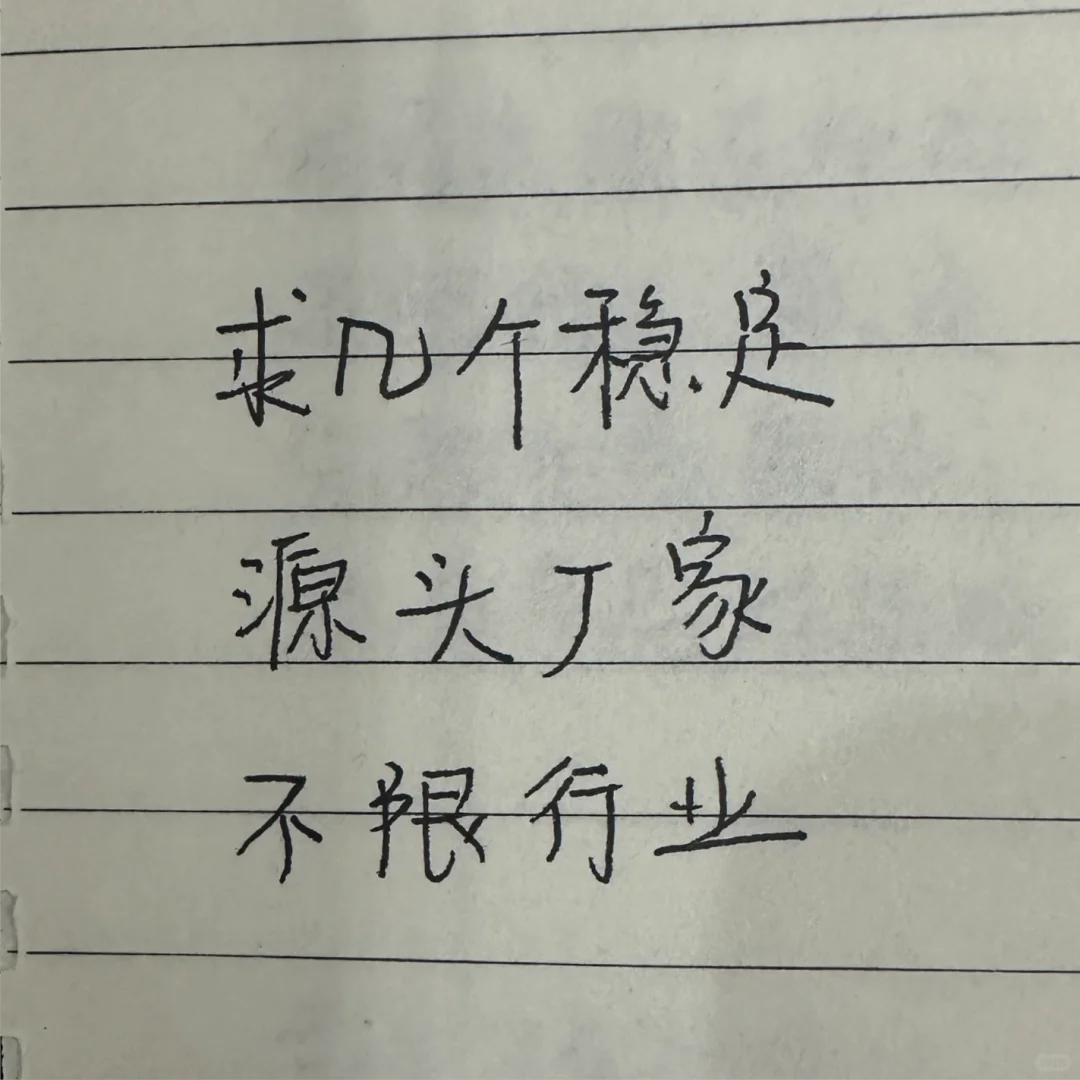 求几个稳定
源头厂家
不限行业